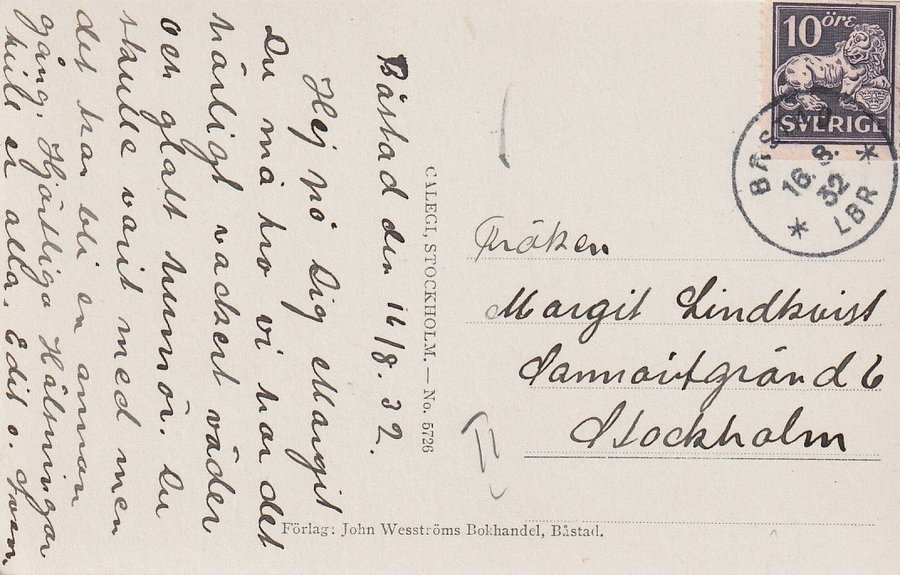 Båstad den 16/8. 32.
Hej på Dig Margit
Du må tro vi har det
härligt vackert väder
och glatt humör. Du
skulle varit med men
det kan bli en annan
gång. Hjärtliga Hälsningar
till er alla. Edit o. Sven
CALEGI, STOCKHOLM. — No. 5726
10 öre
SVERIGE
BÅSTAD
16.8.
32
* LBR *
Fröken
Margit Lindkvist
6
Stockholm
II
Förlag: John Wesströms Bokhandel, Båstad.